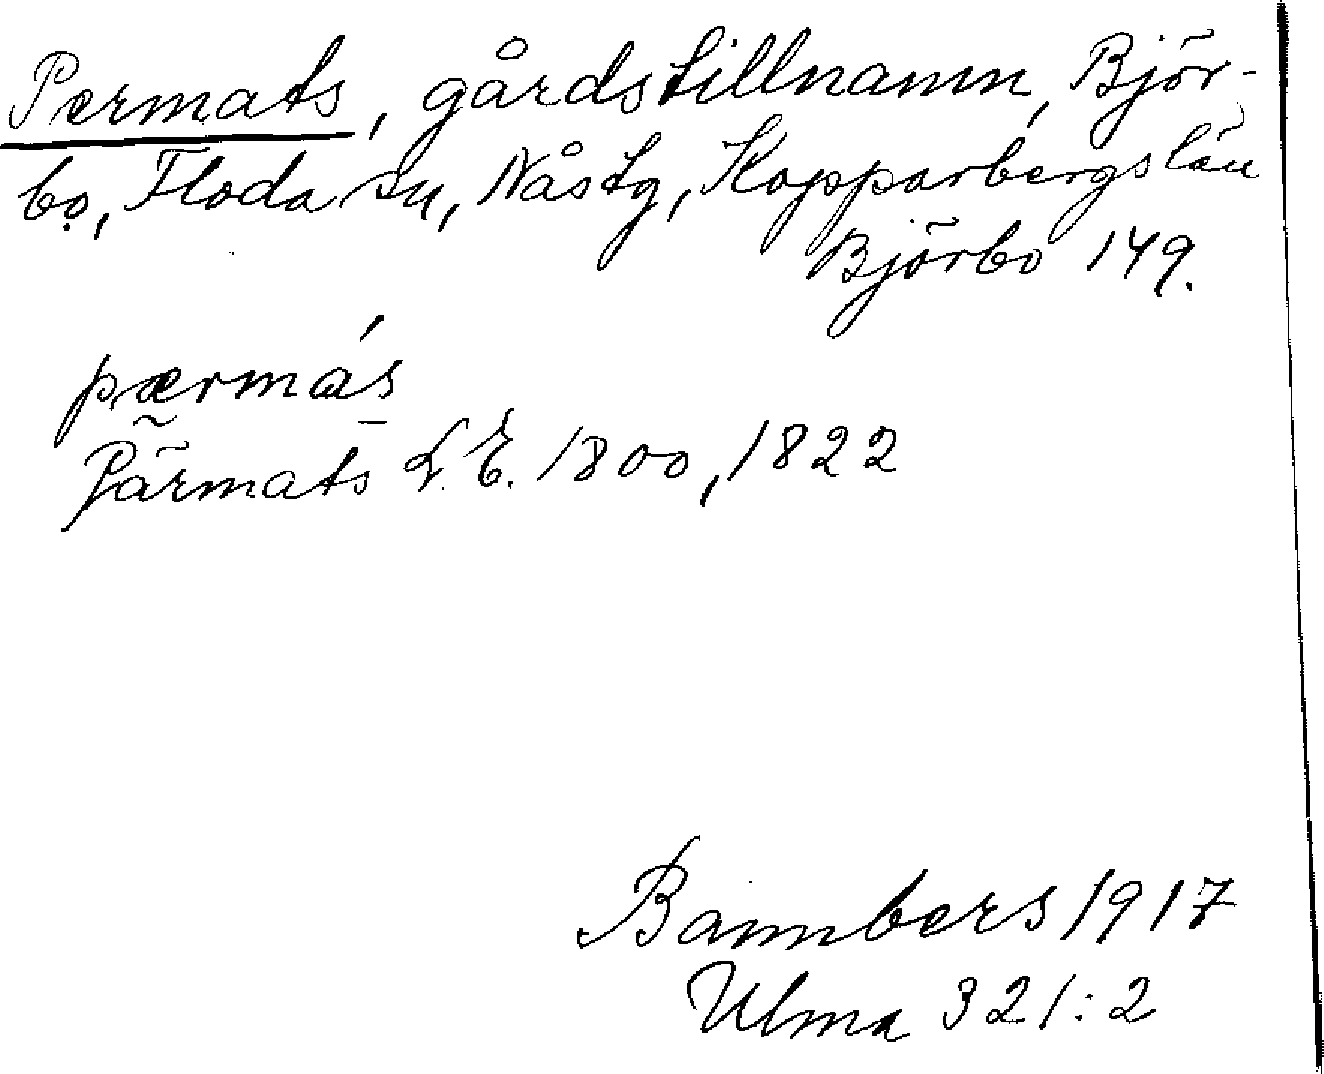 Permats, gårdstillnamn, Björ-
bo, Floda sn, Nås tg, Kopparbergs län
Björbo 149.
pærmás
Pärmats L.E. 1800, 1822
Bannbers 1917
Ulma 321:2